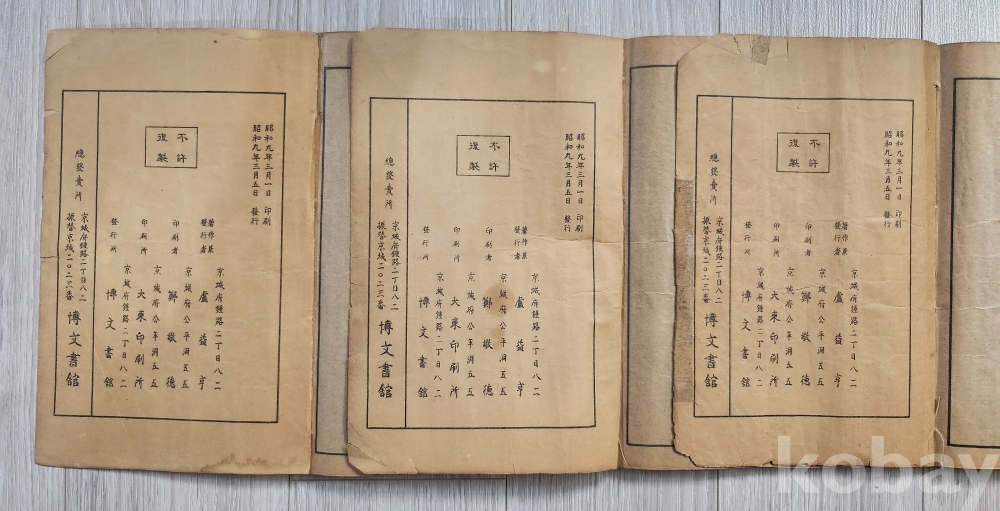 昭和九年三月一日 印刷
昭和九年三月五日 發行
不許
複製
京城府鍾路二丁目八二
著作兼
發行者 盧益亨
京城府公平洞五五
印刷者 鄭敬德
京城府公平洞五五
印刷所 大東印刷所
京城府鍾路二丁目八二
發行所 博文書館
總發賣所
京城府鍾路二丁目八二
振替京城二〇二三番
博文書館
昭和九年三月一日 印刷
昭和九年三月五日 發行
不許
複製
京城府鍾路二丁目八二
著作兼
發行者 盧益亨
京城府公平洞五五
印刷者 鄭敬德
京城府公平洞五五
印刷所 大東印刷所
京城府鍾路二丁目八二
發行所 博文書館
總發賣所
京城府鍾路二丁目八二
振替京城二〇二三番
博文書館
昭和九年三月一日 印刷
昭和九年三月五日 發行
不許
複製
京城府鍾路二丁目八二
著作兼
發行者 盧益亨
京城府公平洞五五
印刷者 鄭敬德
京城府公平洞五五
印刷所 大東印刷所
京城府鍾路二丁目八二
發行所 博文書館
總發賣所
京城府鍾路二丁目八二
振替京城二〇二三番
博文書館
kobay